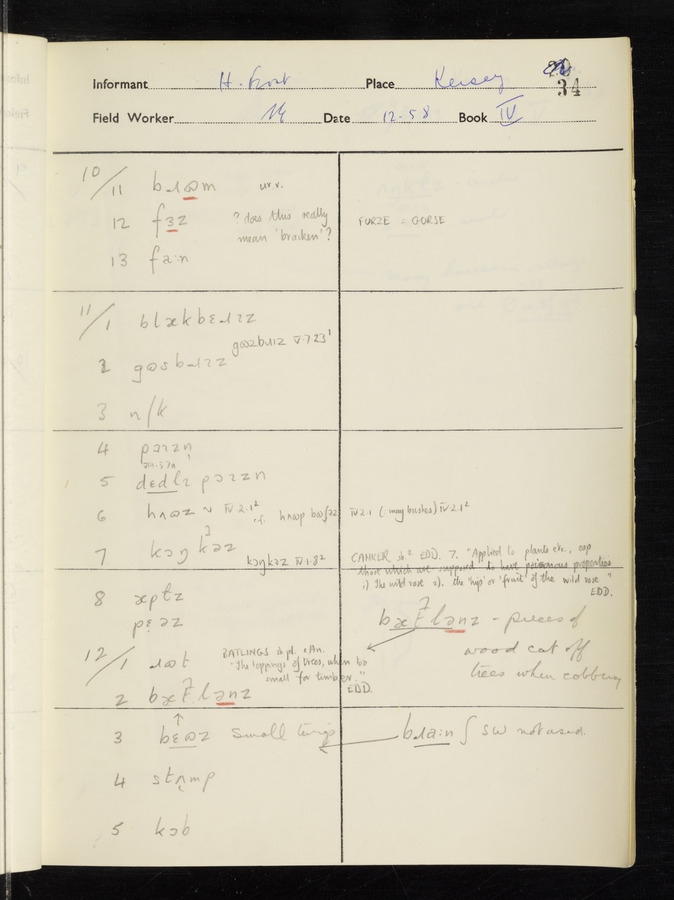 Informant H. Frost Place Kersey 34
Field Worker Date 12-58 Book IV
10/11 bɹɷm ur.v.
12 fɜz ? does this really mean 'bracken'? FURZE = GORSE
13 fəːn
11/1 blækbɛɹɪz
gɷzbɹɪz V.7.23¹
2 gɷsbɹɪz
3 n/k
4 pɔɪzn
5 dɛdlɪ pɔɪzn
6 hʌɷz ~ IV.2.1² IV 2.1 (: may bushes) IV 2.1²
7 kɔŋkəz kɔŋkəz IV.1.8² CANKER sb² EDD. 7. "Applied to plants etc., esp
those which are supposed to have poisonous properties
1). The wild rose 2). the 'hip' or 'fruit' of the wild rose"
EDD.
8 æptz
pɛəz
bæʔlənz - pieces of
wood cut off
trees when cobbing
12/1 ɹɷt BATLINGS sb pl. eAn.
"The loppings of trees, when too
small for timber."
EDD.
2 bæʔlənz
3 bɛɷz small twigs bɹaːn ʃ sw not used.
4 stʌmp
5 kɔb